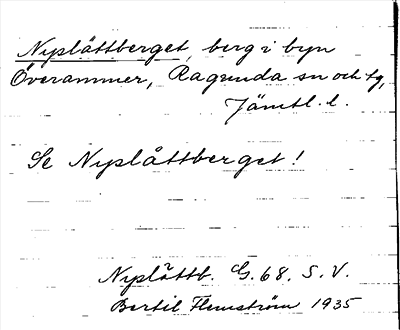 Nyplättberget, berg i byn
Överammer, Ragunda sn och tg,
Jämtl. l.
Se Nyplåttberget!
Nyplättb. G. 68. S. V.
Bertil Flemström 1935